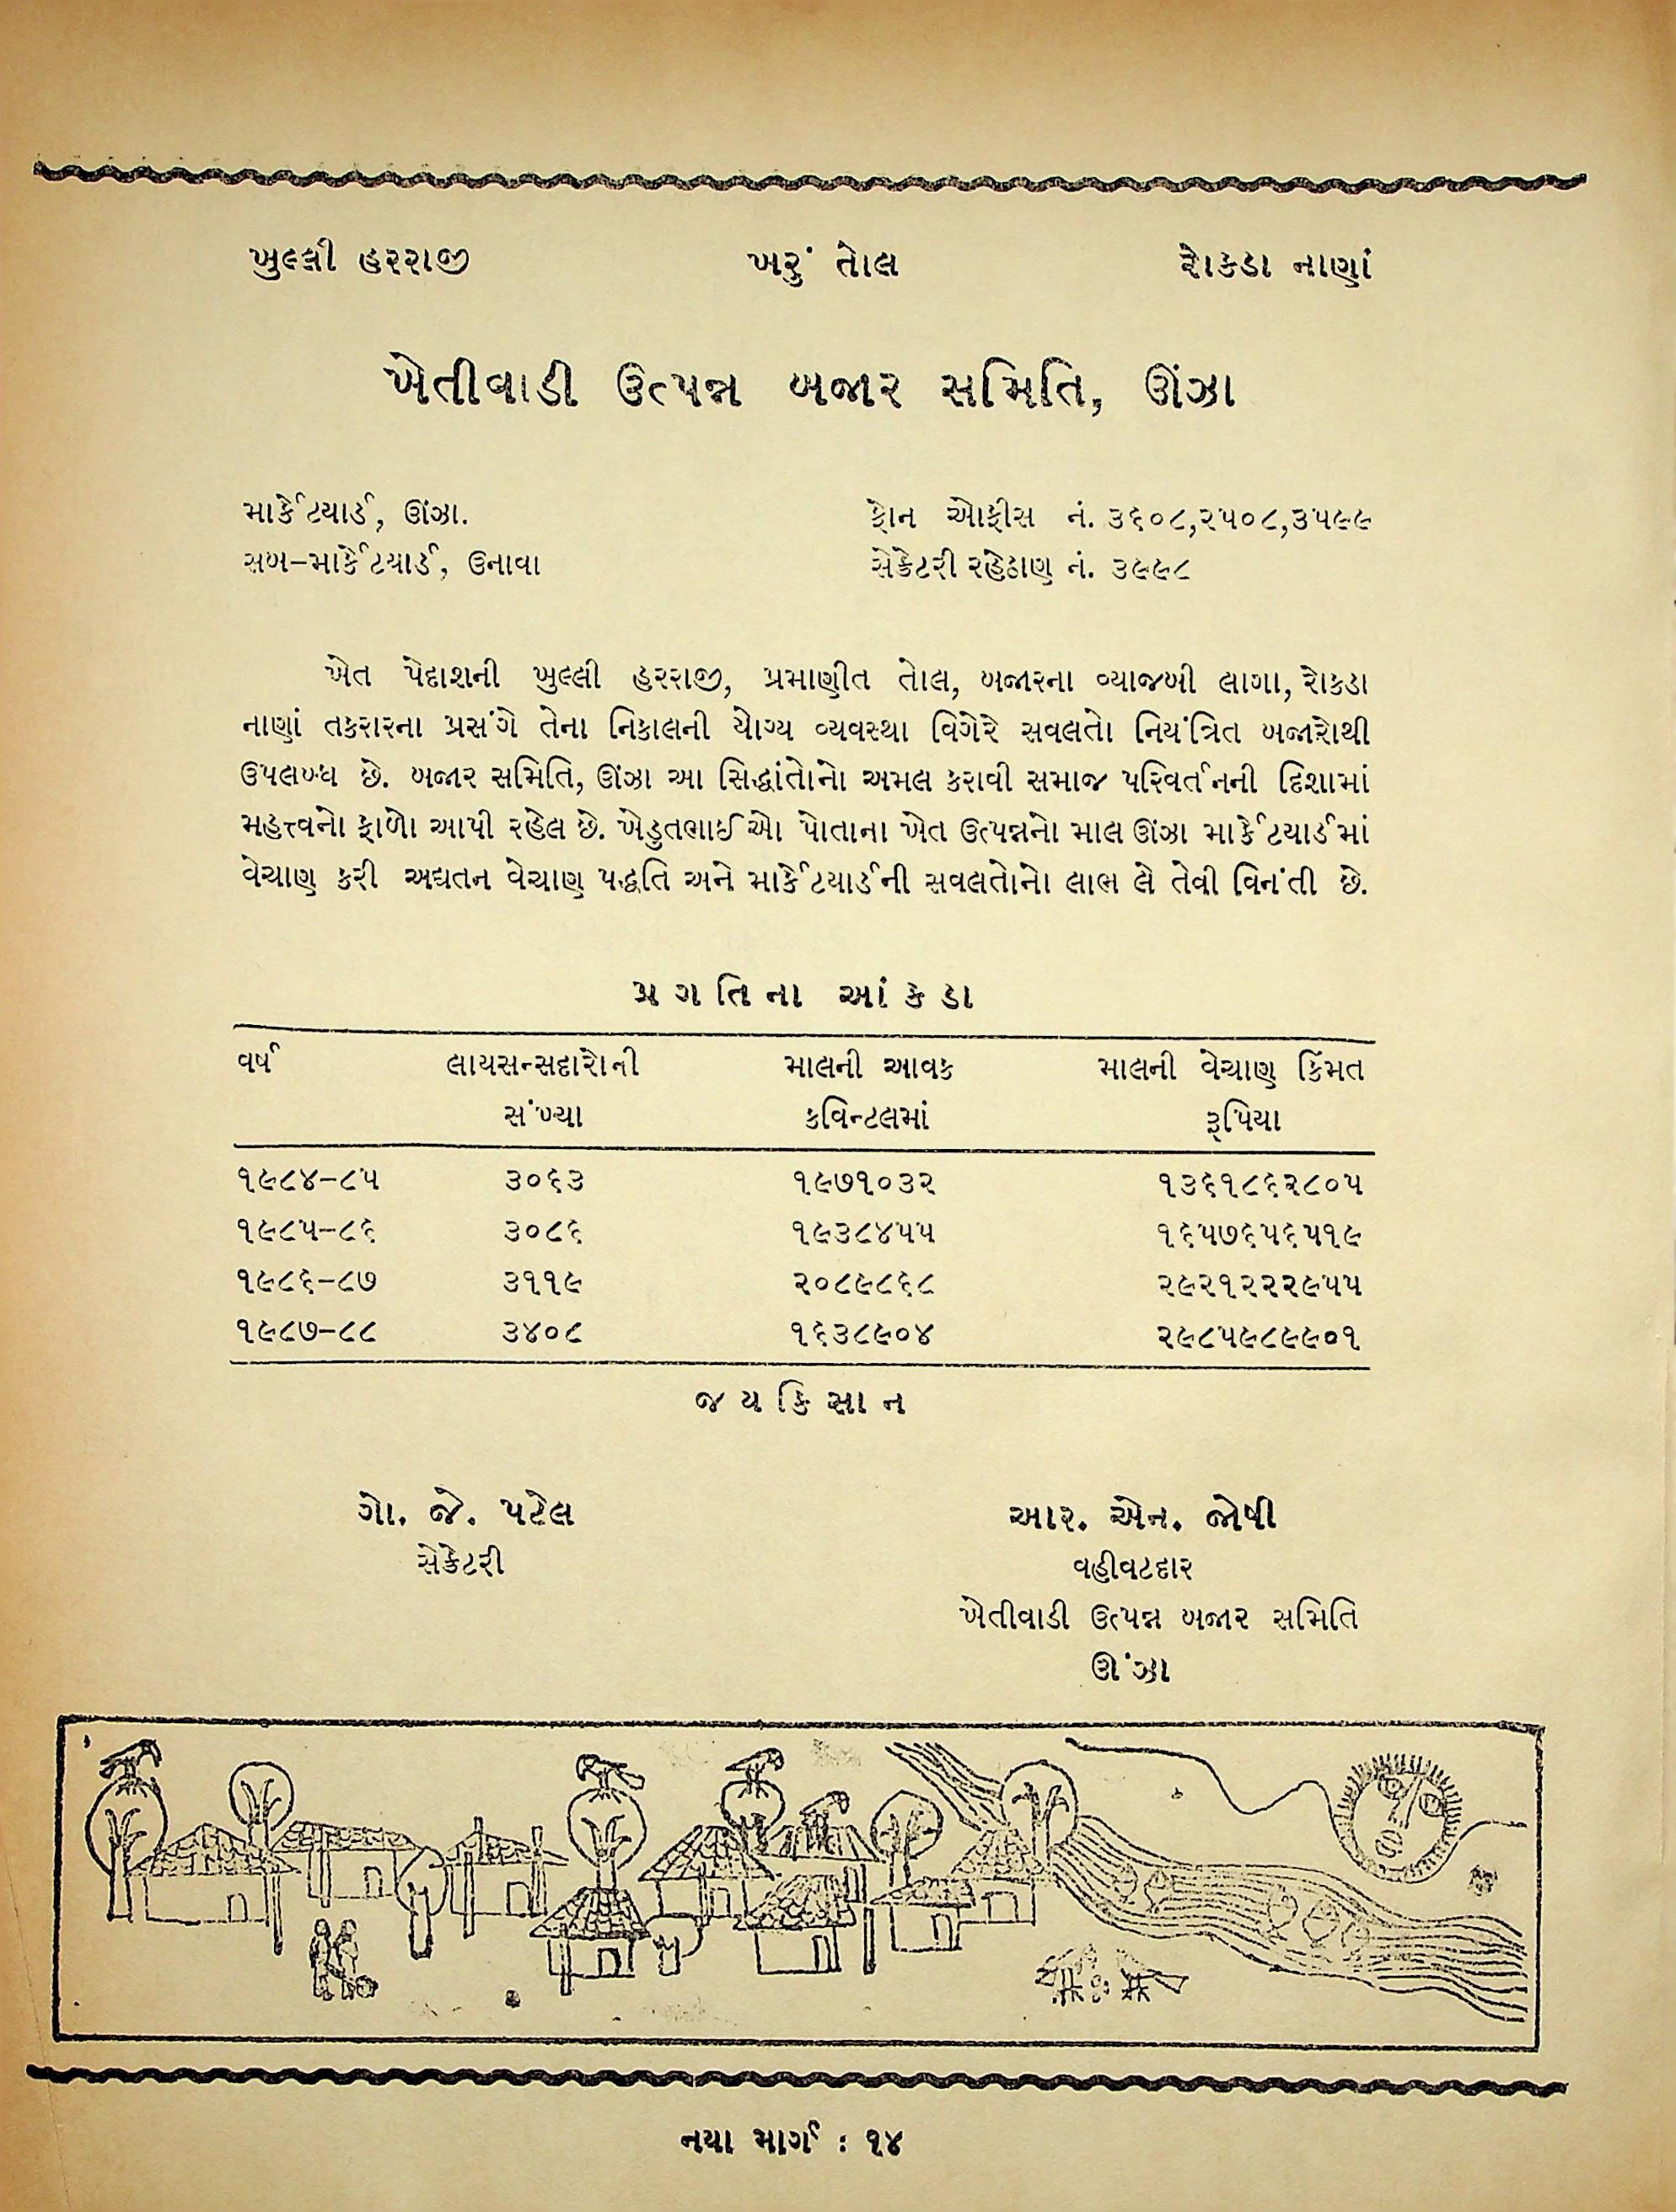 ખુલ્લી હરરાજી ખરું તોલ રોકડા નાણાં
ખેતીવાડી ઉત્પન્ન બજાર સમિતિ, ઊંઝા
માર્કેટયાર્ડ, ઊંઝા. ફોન ઓફીસ નં. ૩૬૦૮,૨૫૦૮,૩૫૯૯
સબ–માર્કેટયાર્ડ, ઉનાવા સેક્રેટરી રહેઠાણ નં. ૩૯૯૮
ખેત પેદાશની ખુલ્લી હરરાજી, પ્રમાણીત તોલ, બજારના વ્યાજબી લાગા, રોકડા
નાણાં તકરારના પ્રસંગે તેના નિકાલની યોગ્ય વ્યવસ્થા વિગેરે સવલતો નિયંત્રિત બજારોથી
ઉપલબ્ધ છે. બજાર સમિતિ, ઊંઝા આ સિદ્ધાંતોનો અમલ કરાવી સમાજ પરિવર્તનની દિશામાં
મહત્ત્વનો ફાળો આપી રહેલ છે. ખેડુતભાઈઓ પોતાના ખેત ઉત્પન્નનો માલ ઊંઝા માર્કેટયાર્ડમાં
વેચાણ કરી અદ્યતન વેચાણ પદ્ધતિ અને માર્કેટયાર્ડની સવલતોનો લાભ લે તેવી વિનંતી છે.
પ્રગતિના આંકડા
વર્ષ લાયસન્સદારોની માલની આવક માલની વેચાણ કિંમત
સંખ્યા કવિન્ટલમાં રૂપિયા
૧૯૮૪–૮૫ ૩૦૬૩ ૧૯૭૧૦૩૨ ૧૩૬૧૮૬૨૮૦૫
૧૯૮૫–૮૬ ૩૦૮૬ ૧૯૩૮૪૫૫ ૧૬૫૭૬૫૬૫૧૯
૧૯૮૬–૮૭ ૩૧૧૯ ૨૦૮૯૮૬૮ ૨૯૨૧૨૨૨૯૫૫
૧૯૮૭–૮૮ ૩૪૦૮ ૧૬૩૮૯૦૪ ૨૯૮૫૯૮૯૯૦૧
જય કિસાન
ગો. જે. પટેલ આર. એન. જોષી
સેક્રેટરી વહીવટદાર
ખેતીવાડી ઉત્પન્ન બજાર સમિતિ
ઊંઝા
નયા માર્ગ : ૧૪